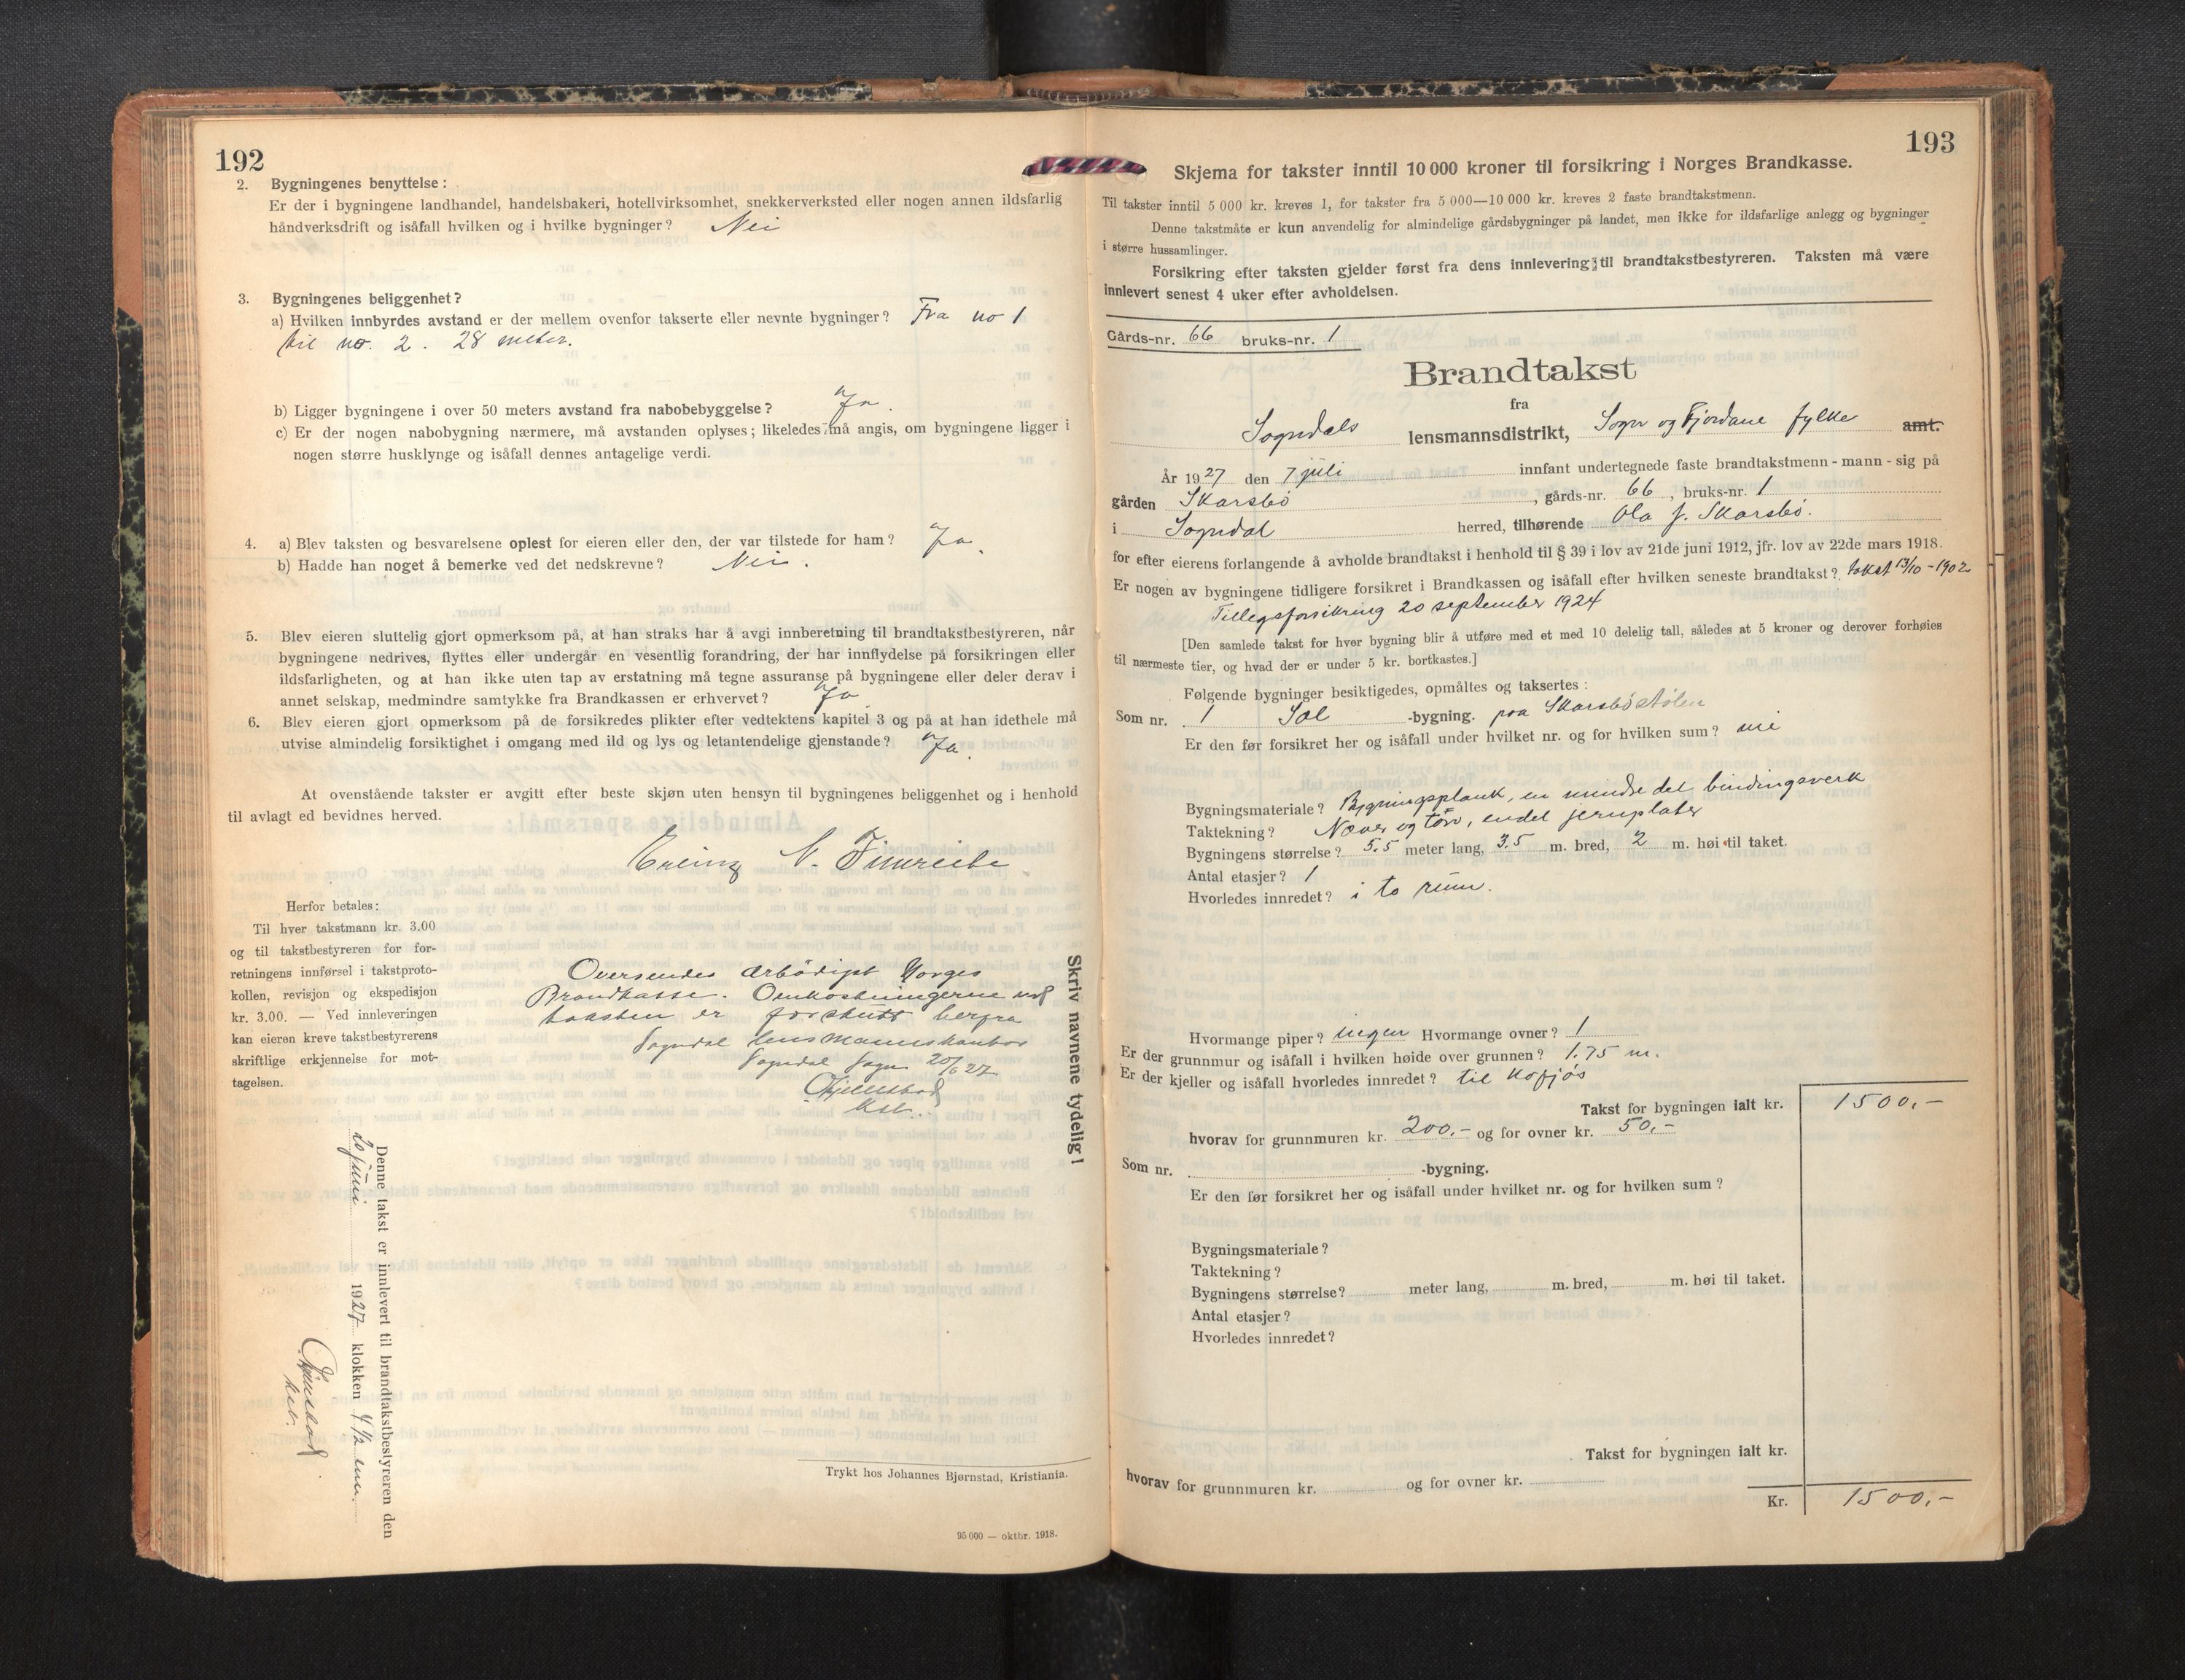 192
2. Bygningenes benyttelse:
Er der i bygningene landhandel, handelsbakeri, hotellvirksomhet, snekkerverksted eller nogen annen ildsfarlig
håndverksdrift og isåfall hvilken og i hvilke bygninger? Nei
3. Bygningenes beliggenhet?
a) Hvilken innbyrdes avstand er der mellem ovenfor takserte eller nevnte bygninger? Fra no 1
til no. 2. 28 meter.
b) Ligger bygningene i over 50 meters avstand fra nabobebyggelse? Ja.
c) Er der nogen nabobygning nærmere, må avstanden oplyses; likeledes må angis, om bygningene ligger i
nogen større husklynge og isåfall dennes antagelige verdi.
4. a) Blev taksten og besvarelsene oplest for eieren eller den, der var tilstede for ham? Ja.
b) Hadde han noget å bemerke ved det nedskrevne? Nei.
5. Blev eieren sluttelig gjort opmerksom på, at han straks har å avgi innberetning til brandtakstbestyreren, når
bygningene nedrives, flyttes eller undergår en vesentlig forandring, der har innflydelse på forsikringen eller
ildsfarligheten, og at han ikke uten tap av erstatning må tegne assuranse på bygningene eller deler derav i
annet selskap, medmindre samtykke fra Brandkassen er erhvervet? Ja
6. Blev eieren gjort opmerksom på de forsikredes plikter efter vedtektens kapitel 3 og på at han idethele må
utvise almindelig forsiktighet i omgang med ild og lys og letantendelige gjenstande? Ja.
At ovenstående takster er avgitt efter beste skjøn uten hensyn til bygningenes beliggenhet og i henhold
til avlagt ed bevidnes herved.
Erling N. Fimreite
Herfor betales:
Til hver takstmann kr. 3.00
og til takstbestyreren for for-
retningens innførsel i takstproto-
kollen, revisjon og ekspedisjon
kr. 3.00. — Ved innleveringen
kan eieren kreve takstbestyrerens
skriftlige erkjennelse for mot-
tagelsen.
Oversendes ærbödigst Norges
Brandkasse. Omkostningerne ved
taksten er forskutt herfra
Sogndal lensmannskontor
Sogndal Sogn 20/6 27
kst.
Skriv navnene tydelig!
Denne takst er innlevert til brandtakstbestyreren den
20 juni 1927 klokken 4 1/2 em.
kst.
Trykt hos Johannes Bjørnstad, Kristiania.
95 000 — oktbr. 1918.
193
Skjema for takster inntil 10 000 kroner til forsikring i Norges Brandkasse.
Til takster inntil 5 000 kr. kreves 1, for takster fra 5 000—10 000 kr. kreves 2 faste brandtakstmenn.
Denne takstmåte er kun anvendelig for almindelige gårdsbygninger på landet, men ikke for ildsfarlige anlegg og bygninger
i større hussamlinger.
Forsikring efter taksten gjelder først fra dens innlevering til brandtakstbestyreren. Taksten må være
innlevert senest 4 uker efter avholdelsen.
Gårds-nr. 66 bruks-nr. 1
Brandtakst
fra
Sogndals lensmannsdistrikt, Sogn og Fjordane fylke amt.
År 1927 den 7 juli innfant undertegnede faste brandtakstmenn - mann - sig på
gården Skarsbö, gårds-nr. 66, bruks-nr. 1
i Sogndal herred, tilhørende Ola J. Skarsbö.
for efter eierens forlangende å avholde brandtakst i henhold til § 39 i lov av 21de juni 1912, jfr. lov av 22de mars 1918.
Er nogen av bygningene tidligere forsikret i Brandkassen og isåfall efter hvilken seneste brandtakst? takst 13/10 - 1902
Tillegsforsikring 20 september 1924
[Den samlede takst for hver bygning blir å utføre med et med 10 delelig tall, således at 5 kroner og derover forhøies
til nærmeste tier, og hvad der er under 5 kr. bortkastes.]
Følgende bygninger besiktigedes, opmåltes og taksertes:
Som nr. 1 Sæl -bygning. paa Skarsböstölen
Er den før forsikret her og isåfall under hvilket nr. og for hvilken sum? nei
Bygningsmateriale? Bygningsplank, en mindre del bindingsverk
Taktekning? Næver og törv, endel jernplater
Bygningens størrelse? 5.5 meter lang, 3.5 m. bred, 2 m. høi til taket.
Antal etasjer? 1
Hvorledes innredet? i to rum.
Hvormange piper? ingen Hvormange ovner? 1
Er der grunnmur og isåfall i hvilken høide over grunnen? 1.75 m.
Er der kjeller og isåfall hvorledes innredet? til kofjös
Takst for bygningen ialt kr. 1500,-
hvorav for grunnmuren kr. 200,- og for ovner kr. 50,-
Som nr. -bygning.
Er den før forsikret her og isåfall under hvilket nr. og for hvilken sum?
Bygningsmateriale?
Taktekning?
Bygningens størrelse? meter lang, m. bred, m. høi til taket.
Antal etasjer?
Hvorledes innredet?
Takst for bygningen ialt kr.
hvorav for grunnmuren kr. og for ovner kr.
Kr. 1500,-